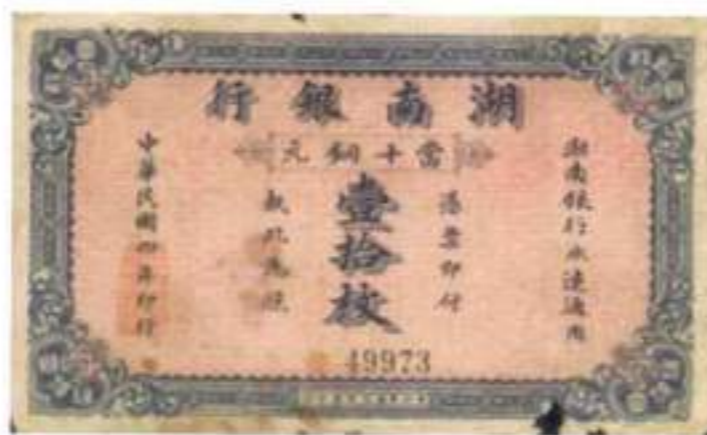 湖南銀行
當十銅元
湖南銀行永遠通用
憑票即付
壹拾枚
執此為照
中華民國四年印行
49973